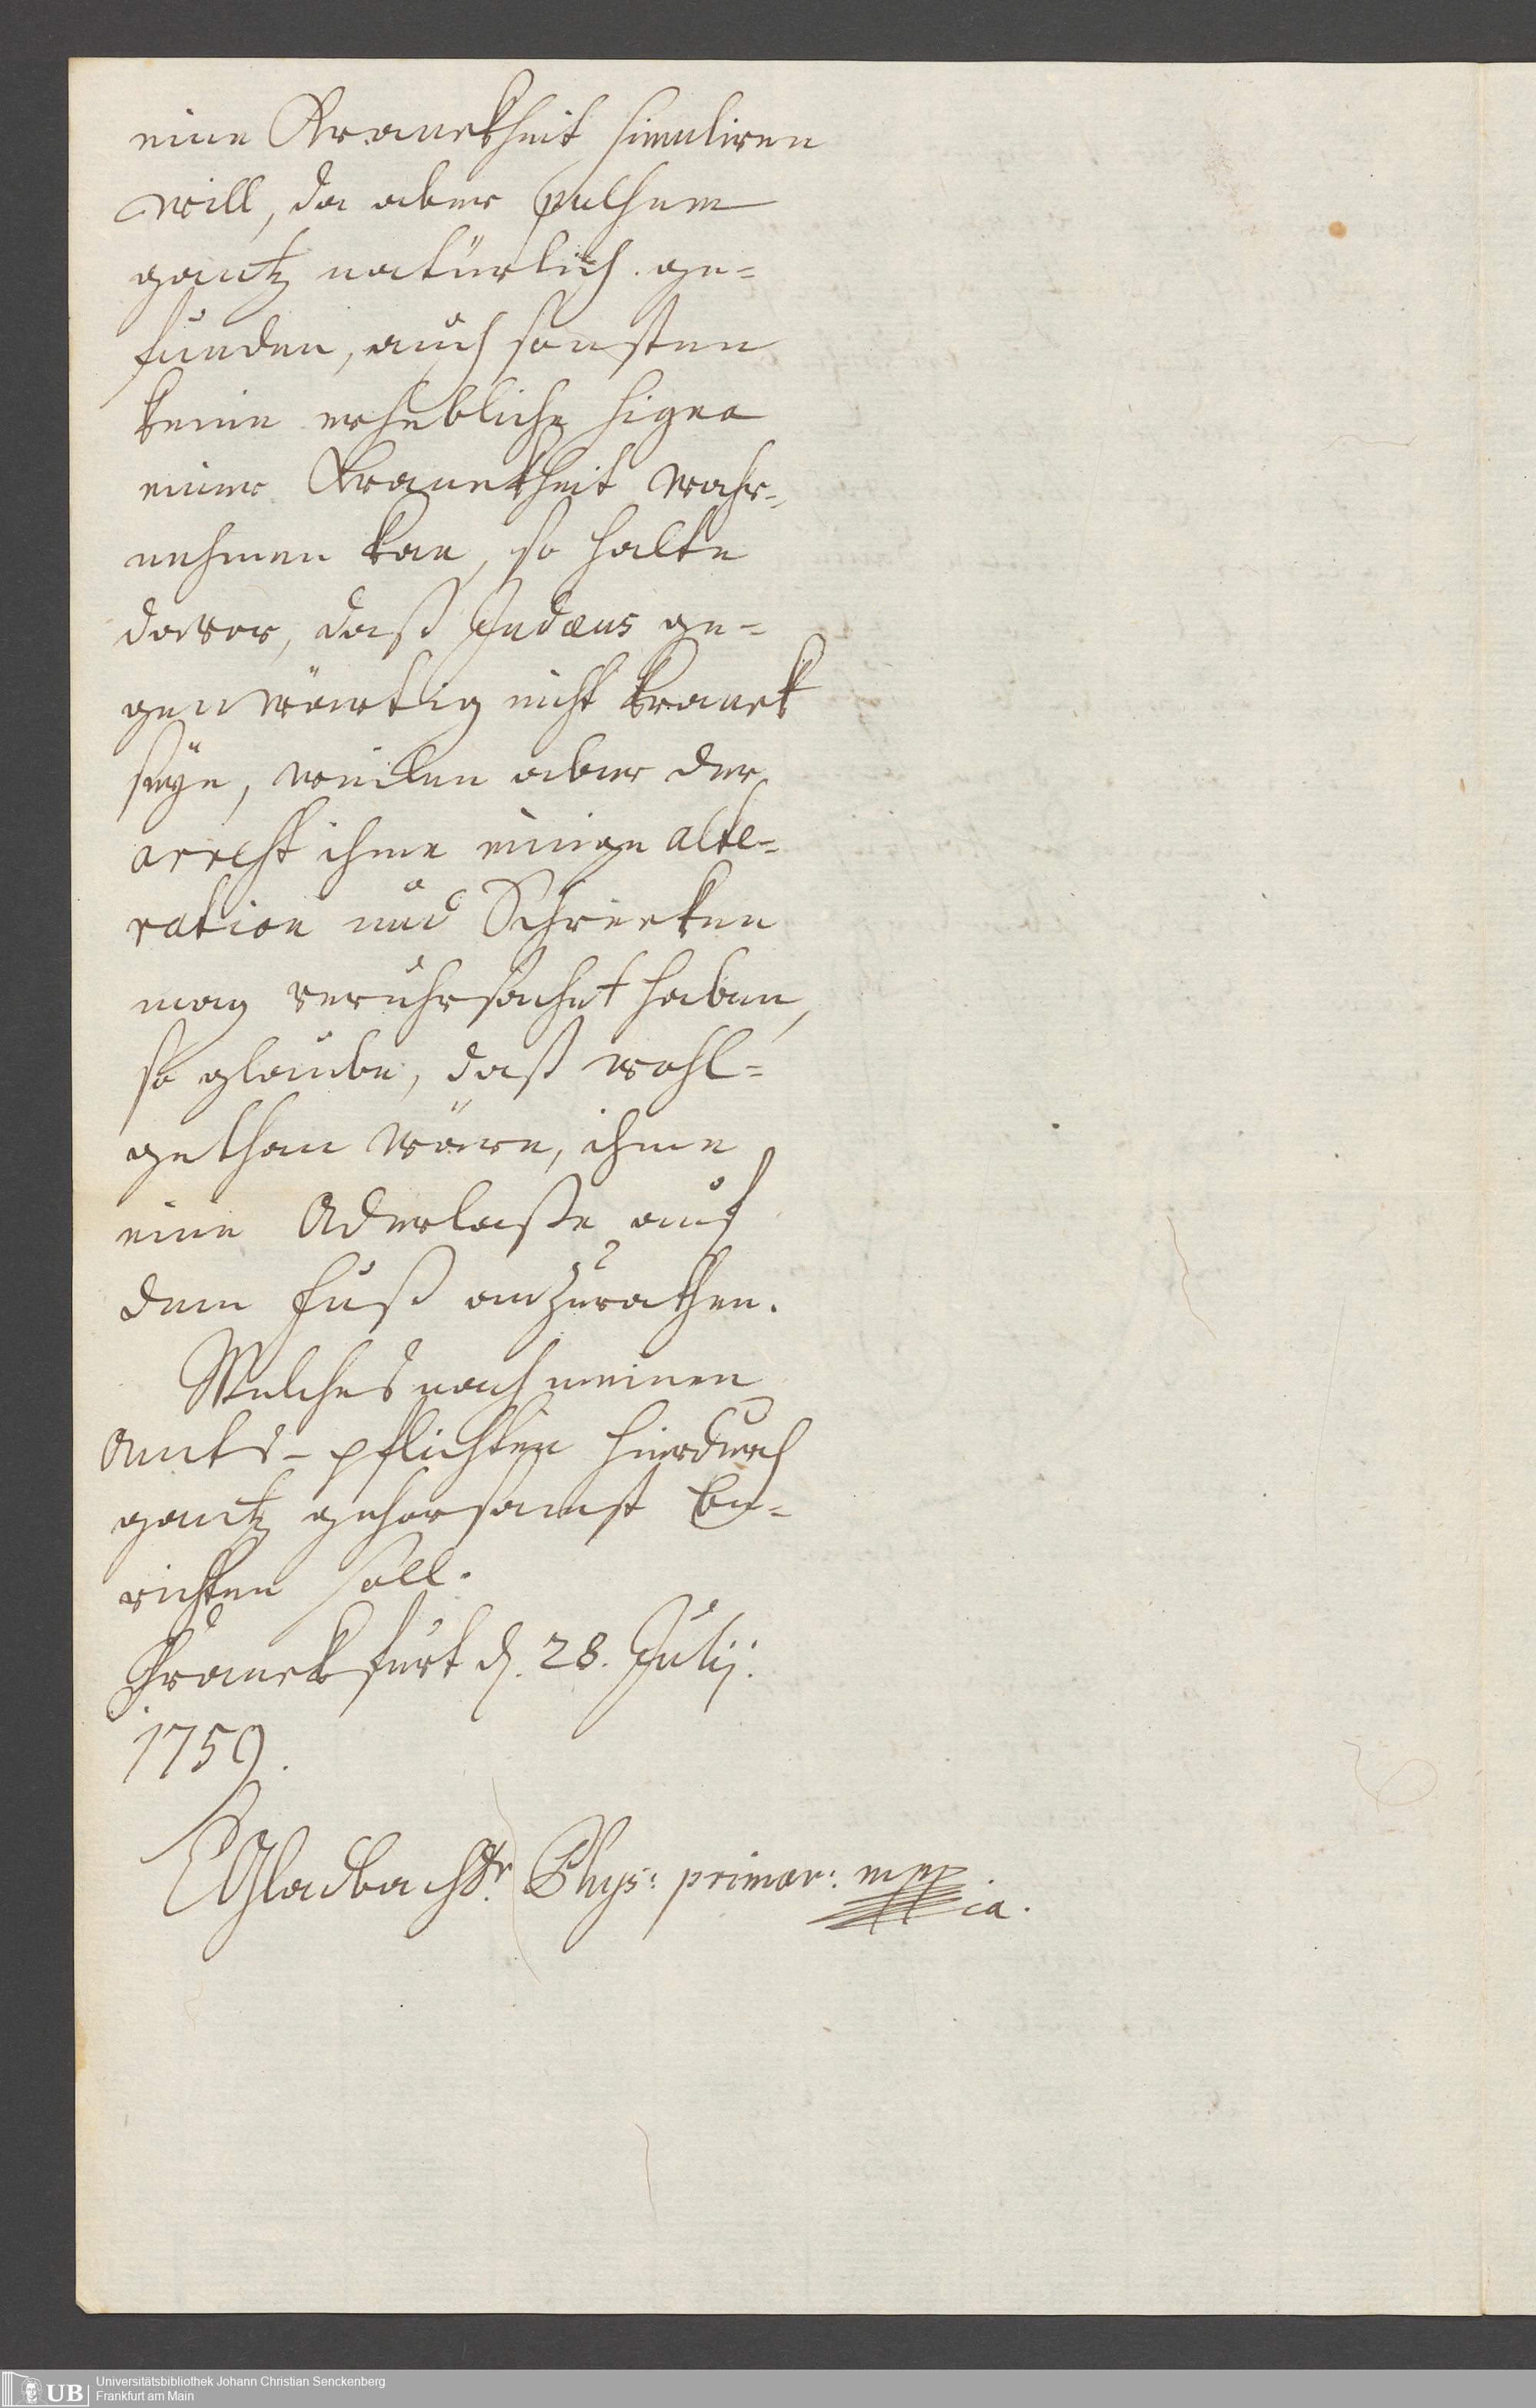 eine Kranckheit simuliren
will, da aber pulsum
gantz natürlich ge-
funden, auch sonsten
keine erhebliche signa
einer Kranckheit wahr-
nehmen kan, so halte
darvor, daß Judæus ge-
genwärtig nicht kranck
seÿe, weilen aber der
arrest ihme einige alte-
ration und Schrecken
mag veruhrsachet haben,
so glaube, daß wohl-
gethan wäre, ihme
eine Aderlaße auf
dem Fuß anzurathen.
Welches nach meinen
Amts-pflichten hierdurch
gantz gehorsamst be-
richten soll.
Franckfurt d. 28. Julij.
1759.
Gladbach Dr. Phys: primar: mppia.
Universitätsbibliothek Johann Christian Senckenberg
Frankfurt am Main
UB